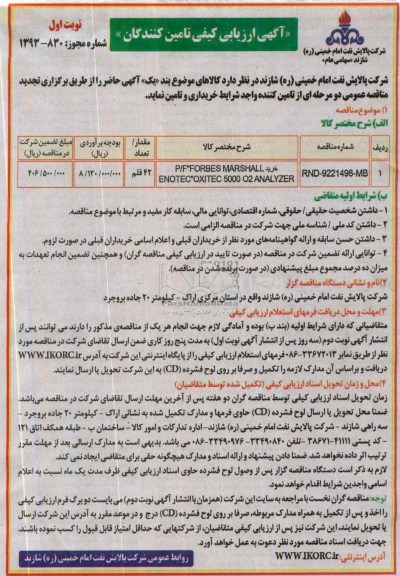 نوبت اول
شماره مجوز: ۸۳۰-۱۳۹۳
«آگهی ارزیابی کیفی تامین کنندگان»
شرکت پالایش نفت امام خمینی (ره)
شازند «سهامی عام»
شرکت پالایش نفت امام خمینی (ره) شازند در نظر دارد کالاهای موضوع بند «یک» آگهی حاضر را از طریق برگزاری تجدید
مناقصه عمومی دو مرحله ای از تامین کننده واجد شرایط خریداری و تامین نماید.
۱) موضوع مناقصه
الف) شرح مختصر کالا
ردیف شماره مناقصه شرح مختصر کالا مقدار/تعداد بودجه برآوردی (ریال) مبلغ تضمین شرکت در مناقصه (ریال)
۱ RND-9221498-MB خرید P/F"FORBES MARSHALL ENOTEC"OXITEC 5000 O2 ANALYZER ۴۲ قلم ۸/۱۳۰/۰۰۰/۰۰۰ ۴۰۶/۵۰۰/۰۰۰
ب) شرایط اولیه متقاضی
۱ - داشتن شخصیت حقیقی/ حقوقی، شماره اقتصادی، توانایی مالی، سابقه کار مفید و مرتبط با موضوع مناقصه.
۲ - داشتن کد ملی / شناسه ملی جهت شرکت در مناقصه الزامی است.
۳ - داشتن حسن سابقه و ارائه گواهینامه های مورد نظر از خریداران قبلی و اعلام اسامی خریداران قبلی در صورت لزوم.
۴ - توانایی ارائه تضمین شرکت در مناقصه (در صورت تایید در ارزیابی کیفی مناقصه گران) و همچنین تضمین انجام تعهدات به
میزان ده درصد مجموع مبلغ پیشنهادی (در صورت برنده شدن در مناقصه).
۲) نام و نشانی دستگاه مناقصه گزار
شرکت پالایش نفت امام خمینی (ره) شازند واقع در استان مرکزی اراک - کیلومتر ۲۰ جاده بروجرد
۳) مهلت و محل دریافت فرمهای استعلام ارزیابی کیفی:
متقاضیانی که دارای شرایط اولیه (بند ب) بوده و آمادگی لازم جهت انجام هر یک از مناقصه‌ی مذکور را دارند می توانند پس از
انتشار آگهی نوبت دوم (سه روز پس از انتشار آگهی نوبت اول) به مدت پنج روز کاری ضمن ارسال تقاضای شرکت در مناقصه مورد
نظر از طریق نمابر ۳۳۶۷۲۰۱۳-۰۸۶ فرمهای استعلام ارزیابی کیفی را از پایگاه اینترنتی این شرکت به آدرس WWW.IKORC.IR
دریافت و براساس آن مدارک لازمه را تکمیل و صرفا بر روی لوح فشرده (CD) به این شرکت تحویل یا ارسال نمایند.
۴) محل و زمان تحویل اسناد ارزیابی کیفی (تکمیل شده توسط متقاضیان)
زمان تحویل اسناد ارزیابی کیفی توسط مناقصه گران دو هفته پس از آخرین مهلت ارسال تقاضای شرکت در مناقصه می‌باشد.
ضمنا محل تحویل یا ارسال لوح فشرده (CD) حاوی فرمها و مدارک تکمیل شده به نشانی اراک - کیلومتر ۲۰ جاده بروجرد -
سه راهی شازند - شرکت پالایش نفت امام خمینی (ره) شازند- اداره تدارکات و امور کالا - ساختمان ب - طبقه همکف اتاق ۱۲۱
- کد پستی ۴۱۱۱۱-۳۸۶۷۱ - تلفن ۳۳۴۹۰۸۴۰-۳۳۴۹۰۹۷۶-۰۸۶ می باشد، بدیهی است به مدارک ارسالی بعد از مهلت مقرر
ترتیب اثر داده نخواهد شد. ضمنا دادن پیشنهاد و ارائه اسناد و مدارک هیچگونه حقی برای متقاضی ایجاد نمی کند.
لازم به ذکر است دستگاه مناقصه گزار پس از وصول لوح فشرده حاوی اسناد ارزیابی کیفی ظرف مدت یک ماه نسبت به اعلام
اسامی واجدین شرایط اقدام خواهد نمود.
توجه: مناقصه گران نخست با مراجعه به سایت این شرکت (همزمان با انتشار آگهی نوبت دوم) می بایست دو برگ فرم ارزیابی کیفی
را اخذ و پس از تکمیل به همراه مدارک مربوطه، صرفا بر روی لوح فشرده (CD) درج و در موعد مقرر به آدرس این شرکت ارسال
یا تحویل نمایند، این شرکت نیز پس از ارزیابی کیفی متقاضیان، از شرکتهایی که حداقل امتیاز قابل قبول را کسب نموده باشند،
جهت دریافت اسناد مناقصه مورد نظر دعوت به عمل خواهد آورد.
آدرس اینترنتی: WWW.IKORC.IR
روابط عمومی شرکت پالایش نفت امام خمینی (ره) شازند